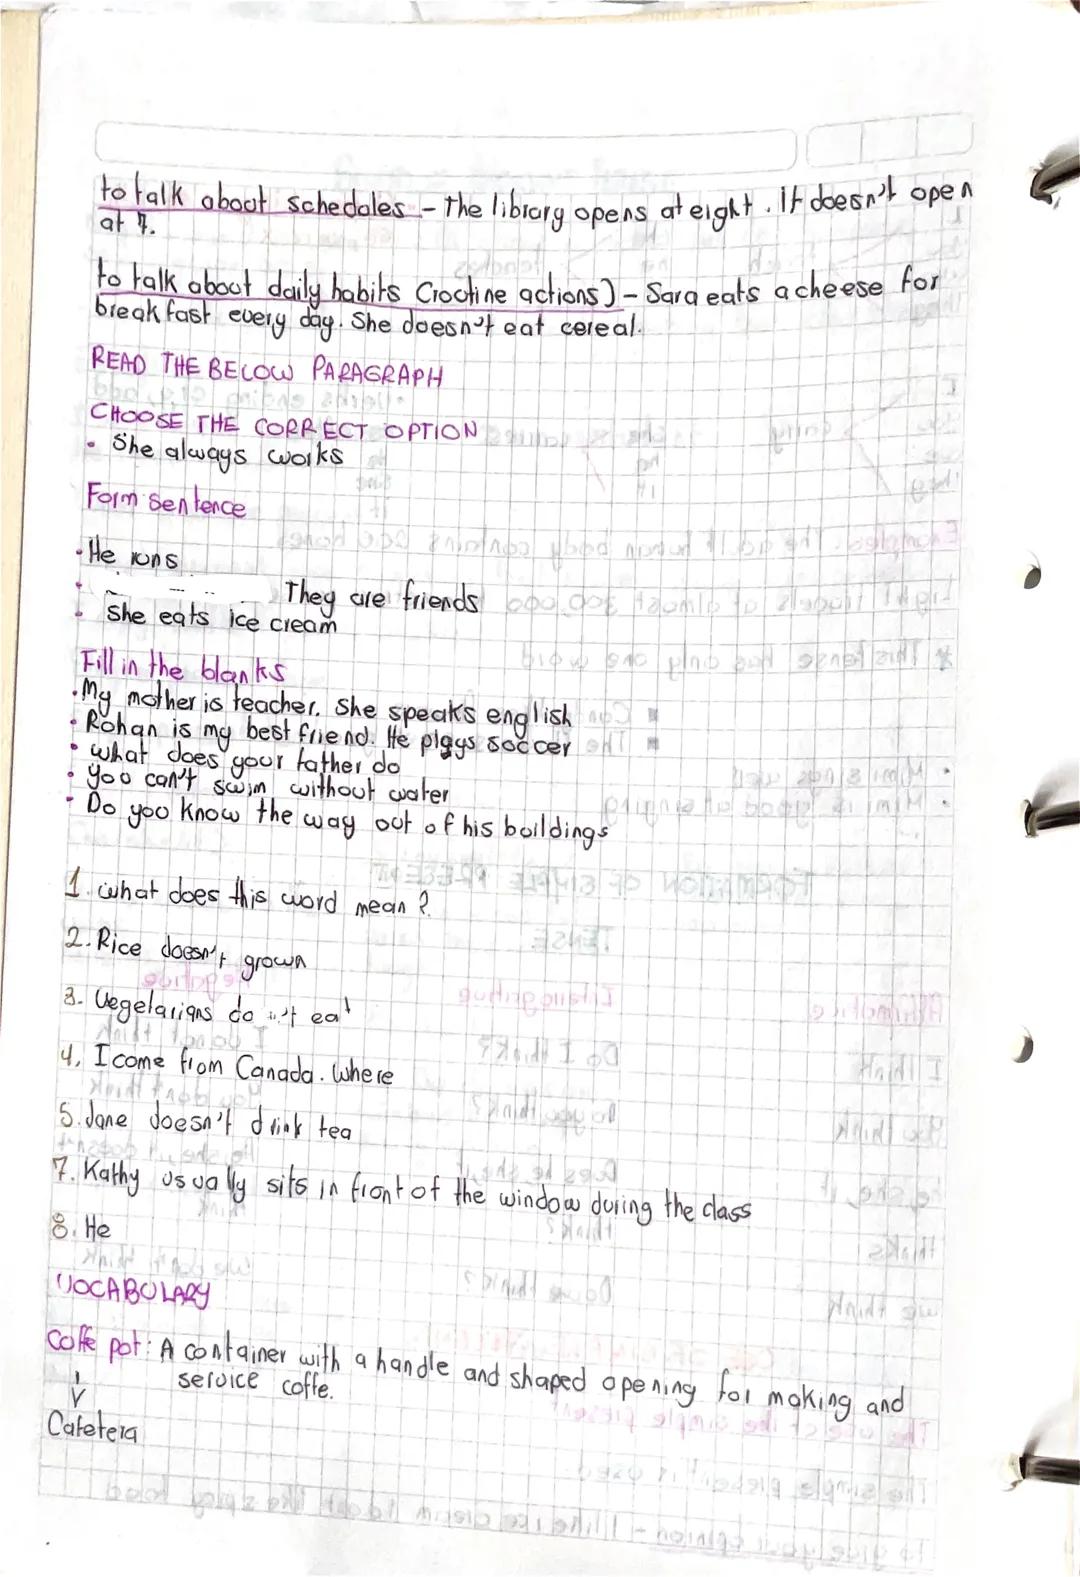 to talk about schedules - The library opens at eight. It doesn't open
at 7.
to talk about daily habits (routine actions) - Sara eats a cheese for
breakfast every day. She doesn't eat cereal.
READ THE BELOW PARAGRAPH
CHOOSE THE CORRECT OPTION
• She always works
Form sentence
• He runs
• They are friends
• She eats ice cream
Fill in the blanks
• My mother is teacher. She speaks english
• Rohan is my best friend. He plays soccer
• what does your father do
• you can't swim without water
• Do you know the way out of his buildings
1. what does this word mean?
2. Rice doesn't grown
3. Vegetarians don't eat
4. I come from Canada. Where
5. Jane doesn't drink tea
7. Kathy usually sits in front of the window during the class
8. He
VOCABULARY
Coffe pot: A container with a handle and shaped opening for making and
service coffe.
Cafetera